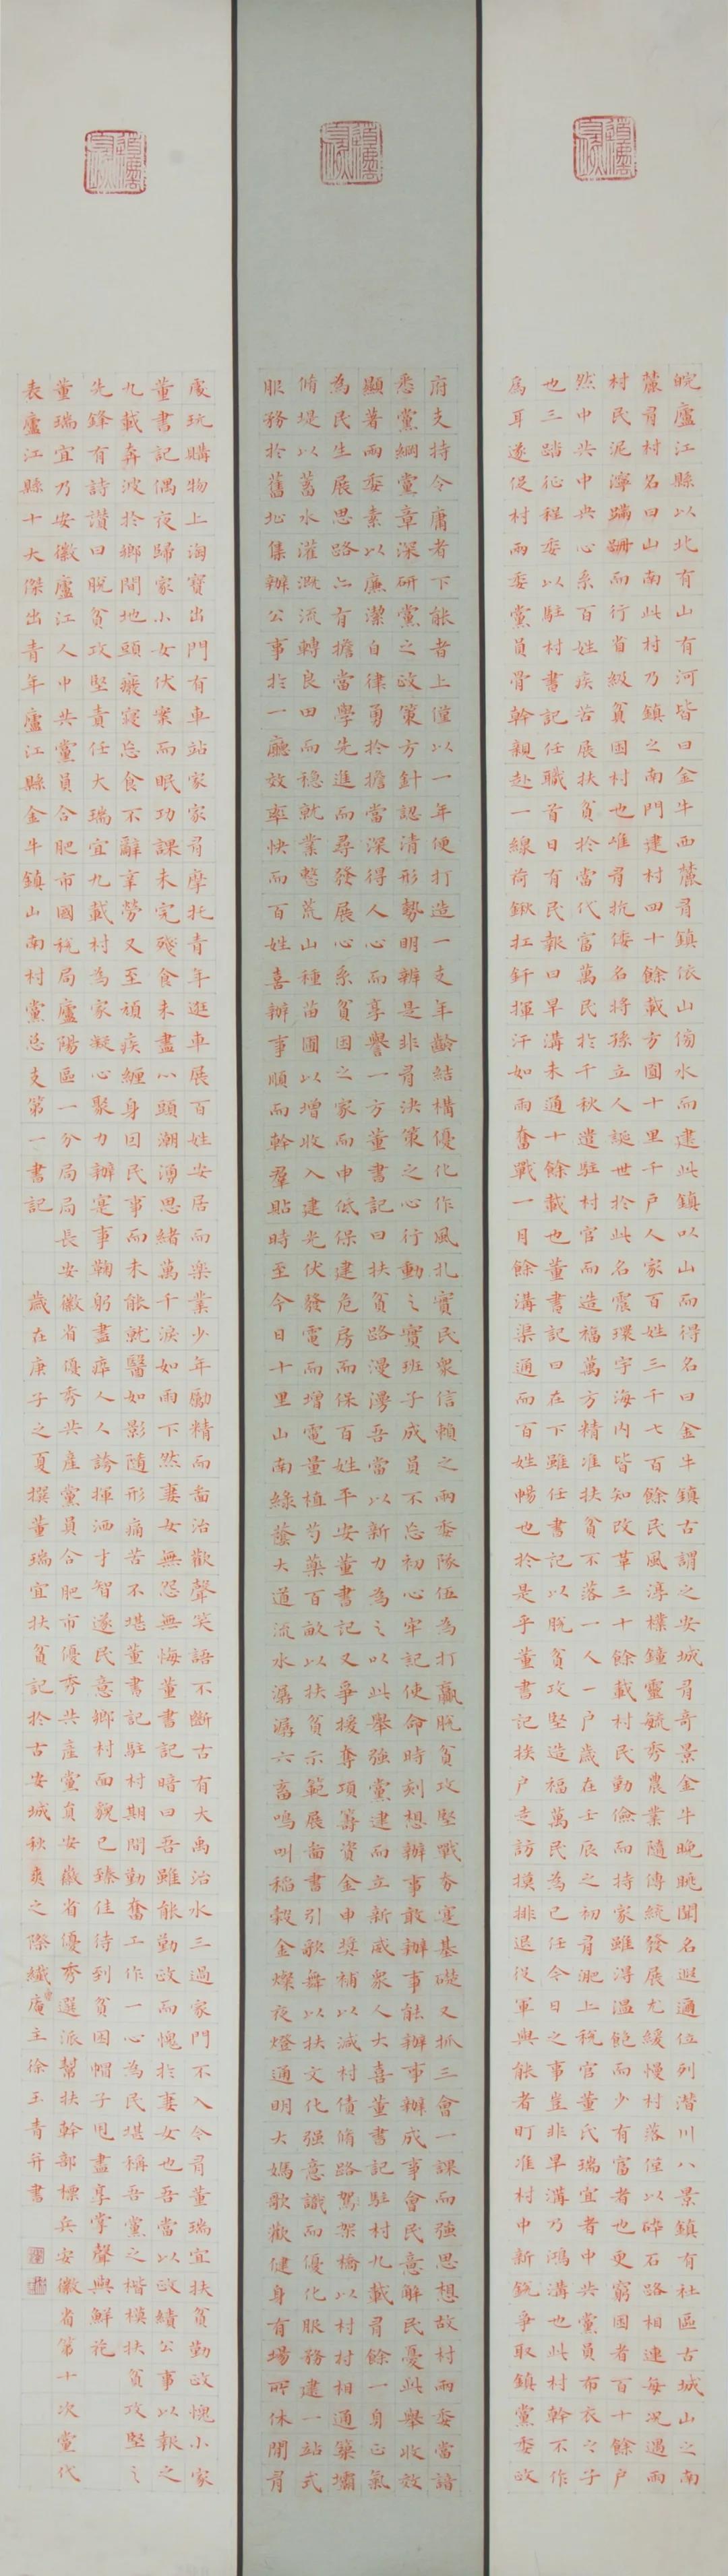 皖廬江縣以北有山有河皆曰金牛西麓有鎮依山傍水而建此鎮以山而得名曰金牛鎮古謂之安城有奇景金牛晚眺聞名遐邇位列潛川八景鎮有社區古城山之南
麓有村名曰山南此村乃鎮之南門建村四十餘載方圓十里千戶人家百姓三千七百餘民風淳樸鐘靈毓秀農業隨傳統發展尤緩慢村落僅以碎石路相連每況遇雨
村民泥濘蹣跚而行省級貧困村也唯有抗倭名將孫立人誕世於此名震環宇海內皆知改革三十餘載村民勤儉而持家雖得溫飽而少有富者也更窮困者百十餘戶
然中共中央心系百姓疾苦展扶貧於當代官萬民於千秋遣駐村官而造福萬方精准扶貧不落一人一戶歲在壬辰之初有淝上稅官董氏瑞宜者中共黨員布衣之子
也三踏征程委以駐村書記任職首日有民報曰旱溝未通十餘載也董書記曰在下雖任書記以脫貧攻堅造福萬民為己任今日之事豈非旱溝乃鴻溝也此村幹不作
為耳遂促村兩委黨員骨幹親赴一線荷鍬扛釺揮汗如雨奮戰一月餘溝渠通而百姓暢也於是乎董書記挨戶走訪摸排退役軍與能者盯准村中新銳爭取鎮黨委政
府支持令庸者下能者上僅以一年便打造一支年齡結構優化作風扎實民衆信賴之兩委隊伍為打贏脫貧攻堅戰夯寔基礎又抓三會一課而強思想故村兩委當諳
悉黨綱黨章深研黨之政策方針認清形勢明辨是非有決策之心行動之實班子成員不忘初心牢記使命時刻想辦事敢辦事能辦事辦成事會民意解民憂此舉收效
顯著而委素以廉潔自律勇於擔當深得人心而享譽一方董書記曰扶貧路漫漫吾當以新力為之以此舉強黨建而立新威衆人大喜董書記駐村九載有餘一身正氣
為民生展思路亦有擔當學先進而尋發展心系貧困之家而申低保建危房而保百姓平安董書記又爭援奪項籌資金申獎補以減村債脩路駕架橋以村村相通築壩
脩堤以蓄水灌溉流轉良田而穩就業墾荒山種苗圃以增收入建光伏發電而增電量植芍藥百畝以扶貧示範展畫書引歌舞以扶文化強意識而優化服務建一站式
服務於舊址集辦公事於一廳效率快而百姓喜辦事順而幹羣貼時至今日十里山南綠蔭大道流水潺潺六畜鳴叫稻穀金燦夜燈通明大媽歌歡健身有場所休閒有
處玩購物上淘寶出門有車站家家有摩托青年逛車展百姓安居而樂業少年勵精而圖治歡聲笑語不斷古有大禹治水三過家門不入今有董瑞宜扶貧勤政愧小家
董書記偶夜歸家小女伏案而眠功課未完殘食未盡心頭潮湧思緒萬千淚如雨下然妻女無怨無悔董書記暗曰吾雖能勤政而愧於妻女也吾當以政績公事以報之
九載奔波於鄉間地頭癈寢忘食不辭辛勞又至頑疾纏身因民事而未能就醫如影隨形痛苦不堪董書記駐村期間勤奮工作一心為民堪稱吾黨之楷模扶貧攻堅之
先鋒有詩讚曰脫貧攻堅責任大瑞宜九載村為家凝心聚力辦寔事鞠躬盡瘁人人誇揮洒才智遂民意鄉村面貌已臻佳待到貧困帽子甩盡享掌聲與鮮花
董瑞宜乃安徽廬江人中共黨員合肥市國稅局廬陽區一分局局長安徽省優秀共產黨員合肥市優秀共產黨員安徽省優秀選派幫扶幹部標兵安徽省第十次黨代
表廬江縣十大傑出青年廬江縣金牛鎮山南村黨總支第一書記 歲在庚子之夏撰董瑞宜扶貧記於古安城秋爽之際纖庵主徐玉青并書